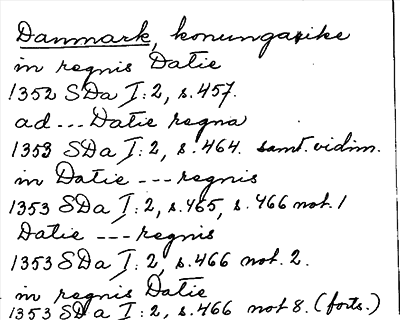 Danmark, konungarike
in regnis Datie
1352 SDa I:2, s.457.
ad --- Datie regna
1353 SDa I:2, s.464. samt. vidim.
in Datie --- regnis
1353 SDa I:2, s.465, s.466 not. 1
Datie --- regnis
1353 SDa I:2, s.466 not. 2.
in regnis Datie
1353 SDa I:2, s.466 not 8. (forts.)